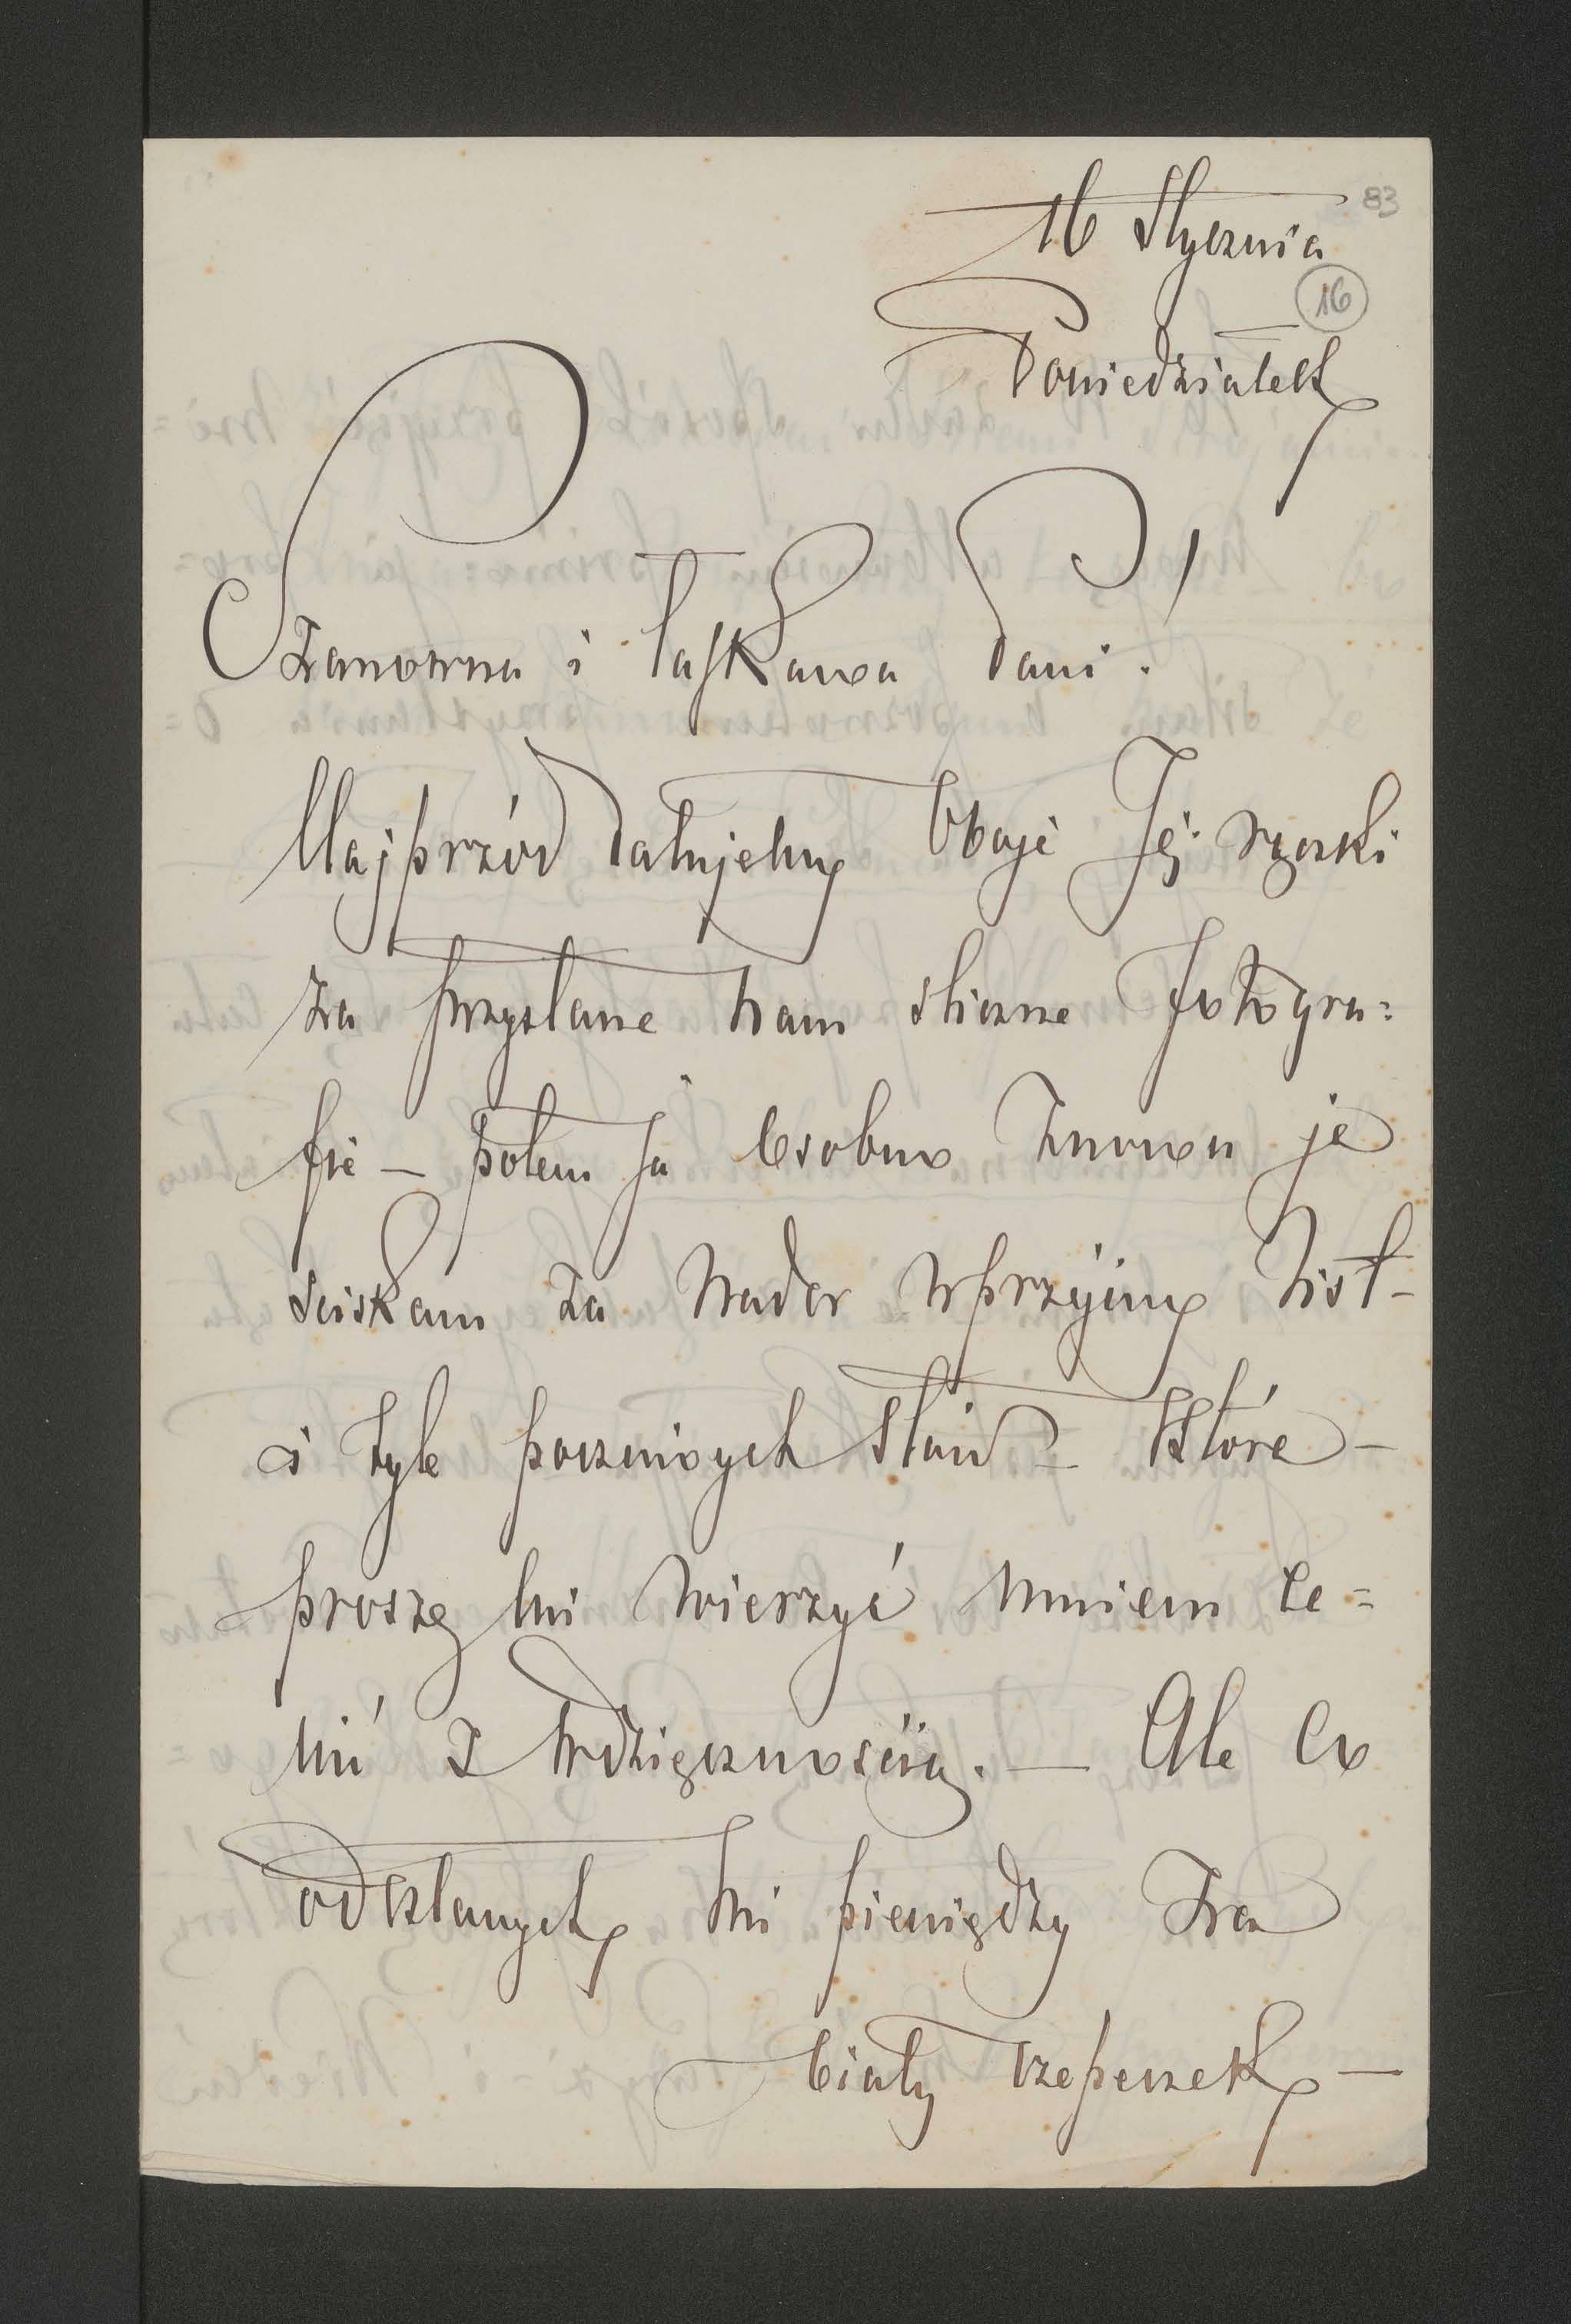 83
16 Stycznia
16
Poniedziałek
Szanowna i łaskawa Pani!
Najprzód całujemy Oboje Jej rączki
za przysłane nam śliczne fotogra=
fie – potem ja osobno znowu je
ściskam za nader uprzejmy list –
i tyle poczciwych słów – które –
proszę mi wierzyć umiem ce=
nić z wdzięcznością. – Ale co
odesłanych mi pieniędzy za
biały czepeczek –